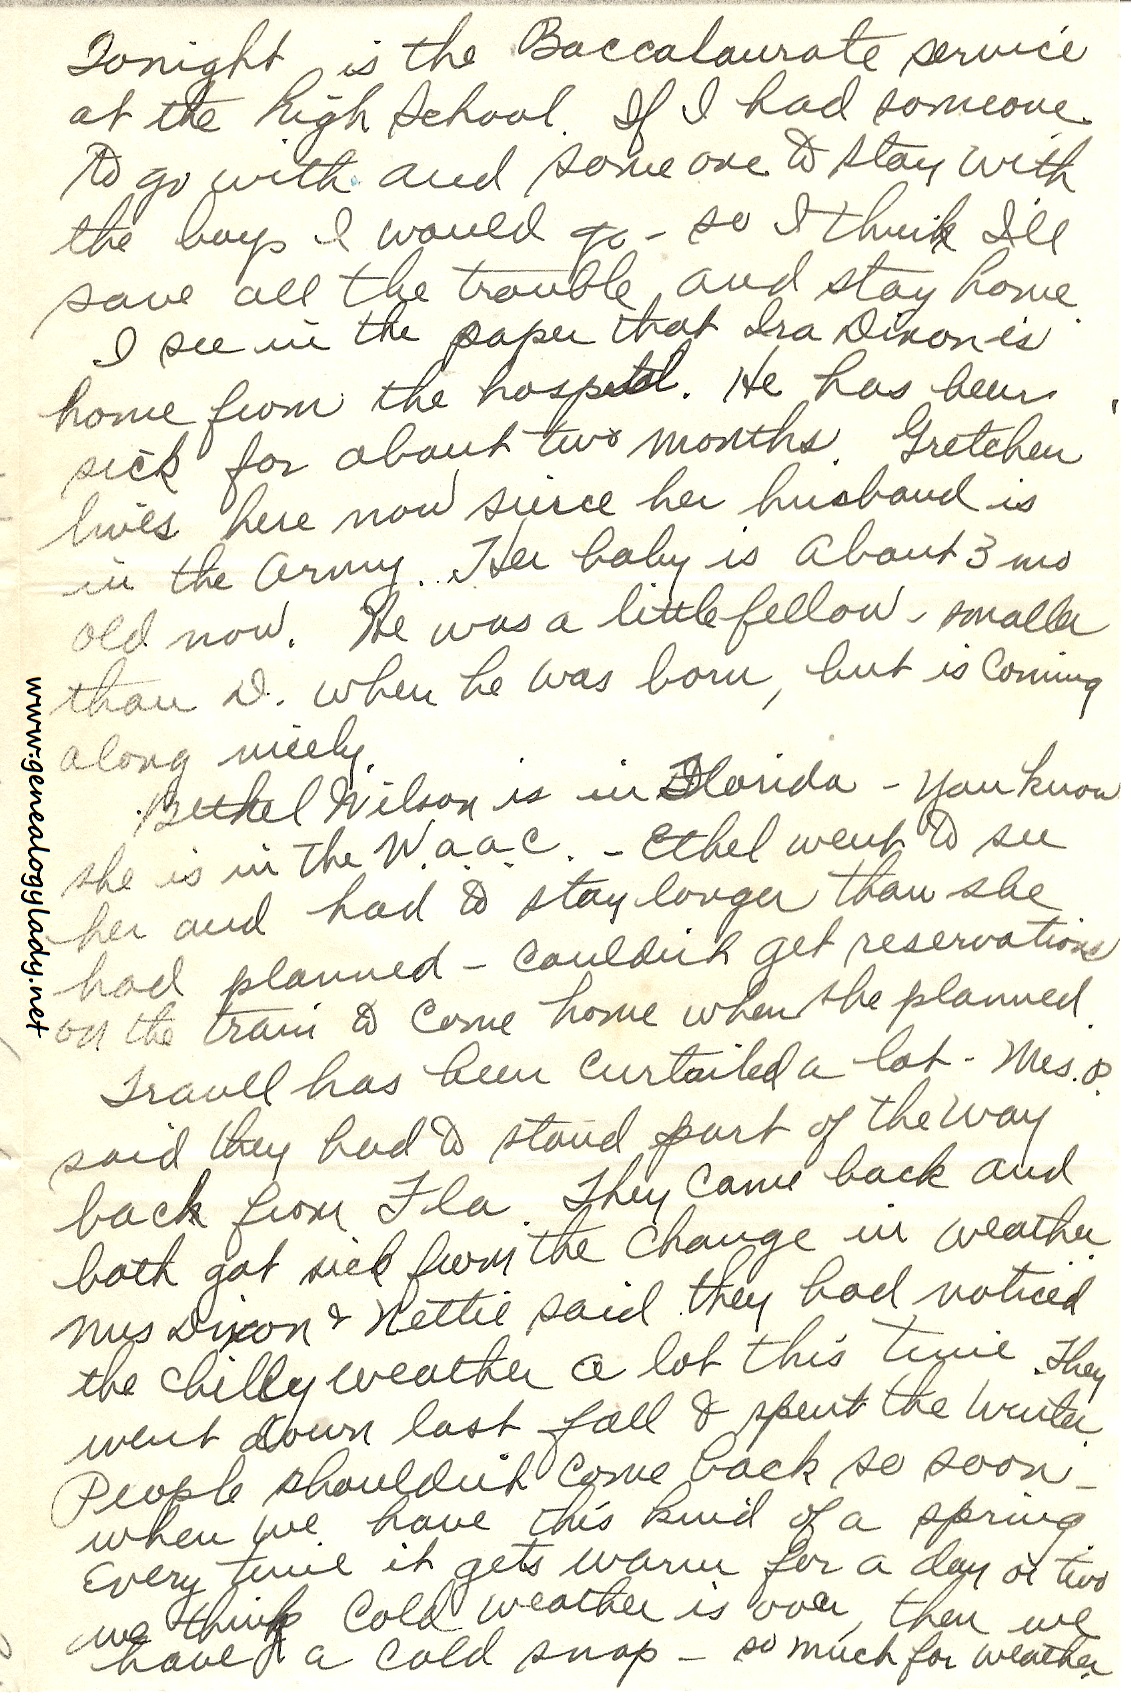 Tonight is the Baccalaurate service
at the high school. If I had someone
to go with and some one to stay with
the boys I would go - so I think I'll
save all the trouble and stay home.
I see in the paper that Ira Dixon is
home from the hospital. He has been
sick for about two months. Gretchen
lives here now since her husband is
in the army. Her baby is about 3 mo
old now. He was a little fellow - smaller
than D. when he was born, but is coming
along nicely.
Bethel Wilson is in Florida - You know
she is in the W.a.a.C. - Ethel went to see
her and had to stay longer than she
had planned - couldn't get reservations
on the train to come home when she planned.
Travel has been curtailed a lot - Mrs. O.
said they had to stand part of the way
back from Fla. They came back and
both got sick from the change in weather.
Mrs Dixon & Nettie said they had noticed
the chilly weather a lot this time. They
went down last fall & spent the winter.
People shouldn't come back so soon -
when we have this kind of a spring.
Every time it gets warm for a day or two
we think cold weather is over, then we
have a cold snap - so much for weather.
www.genealogylady.net